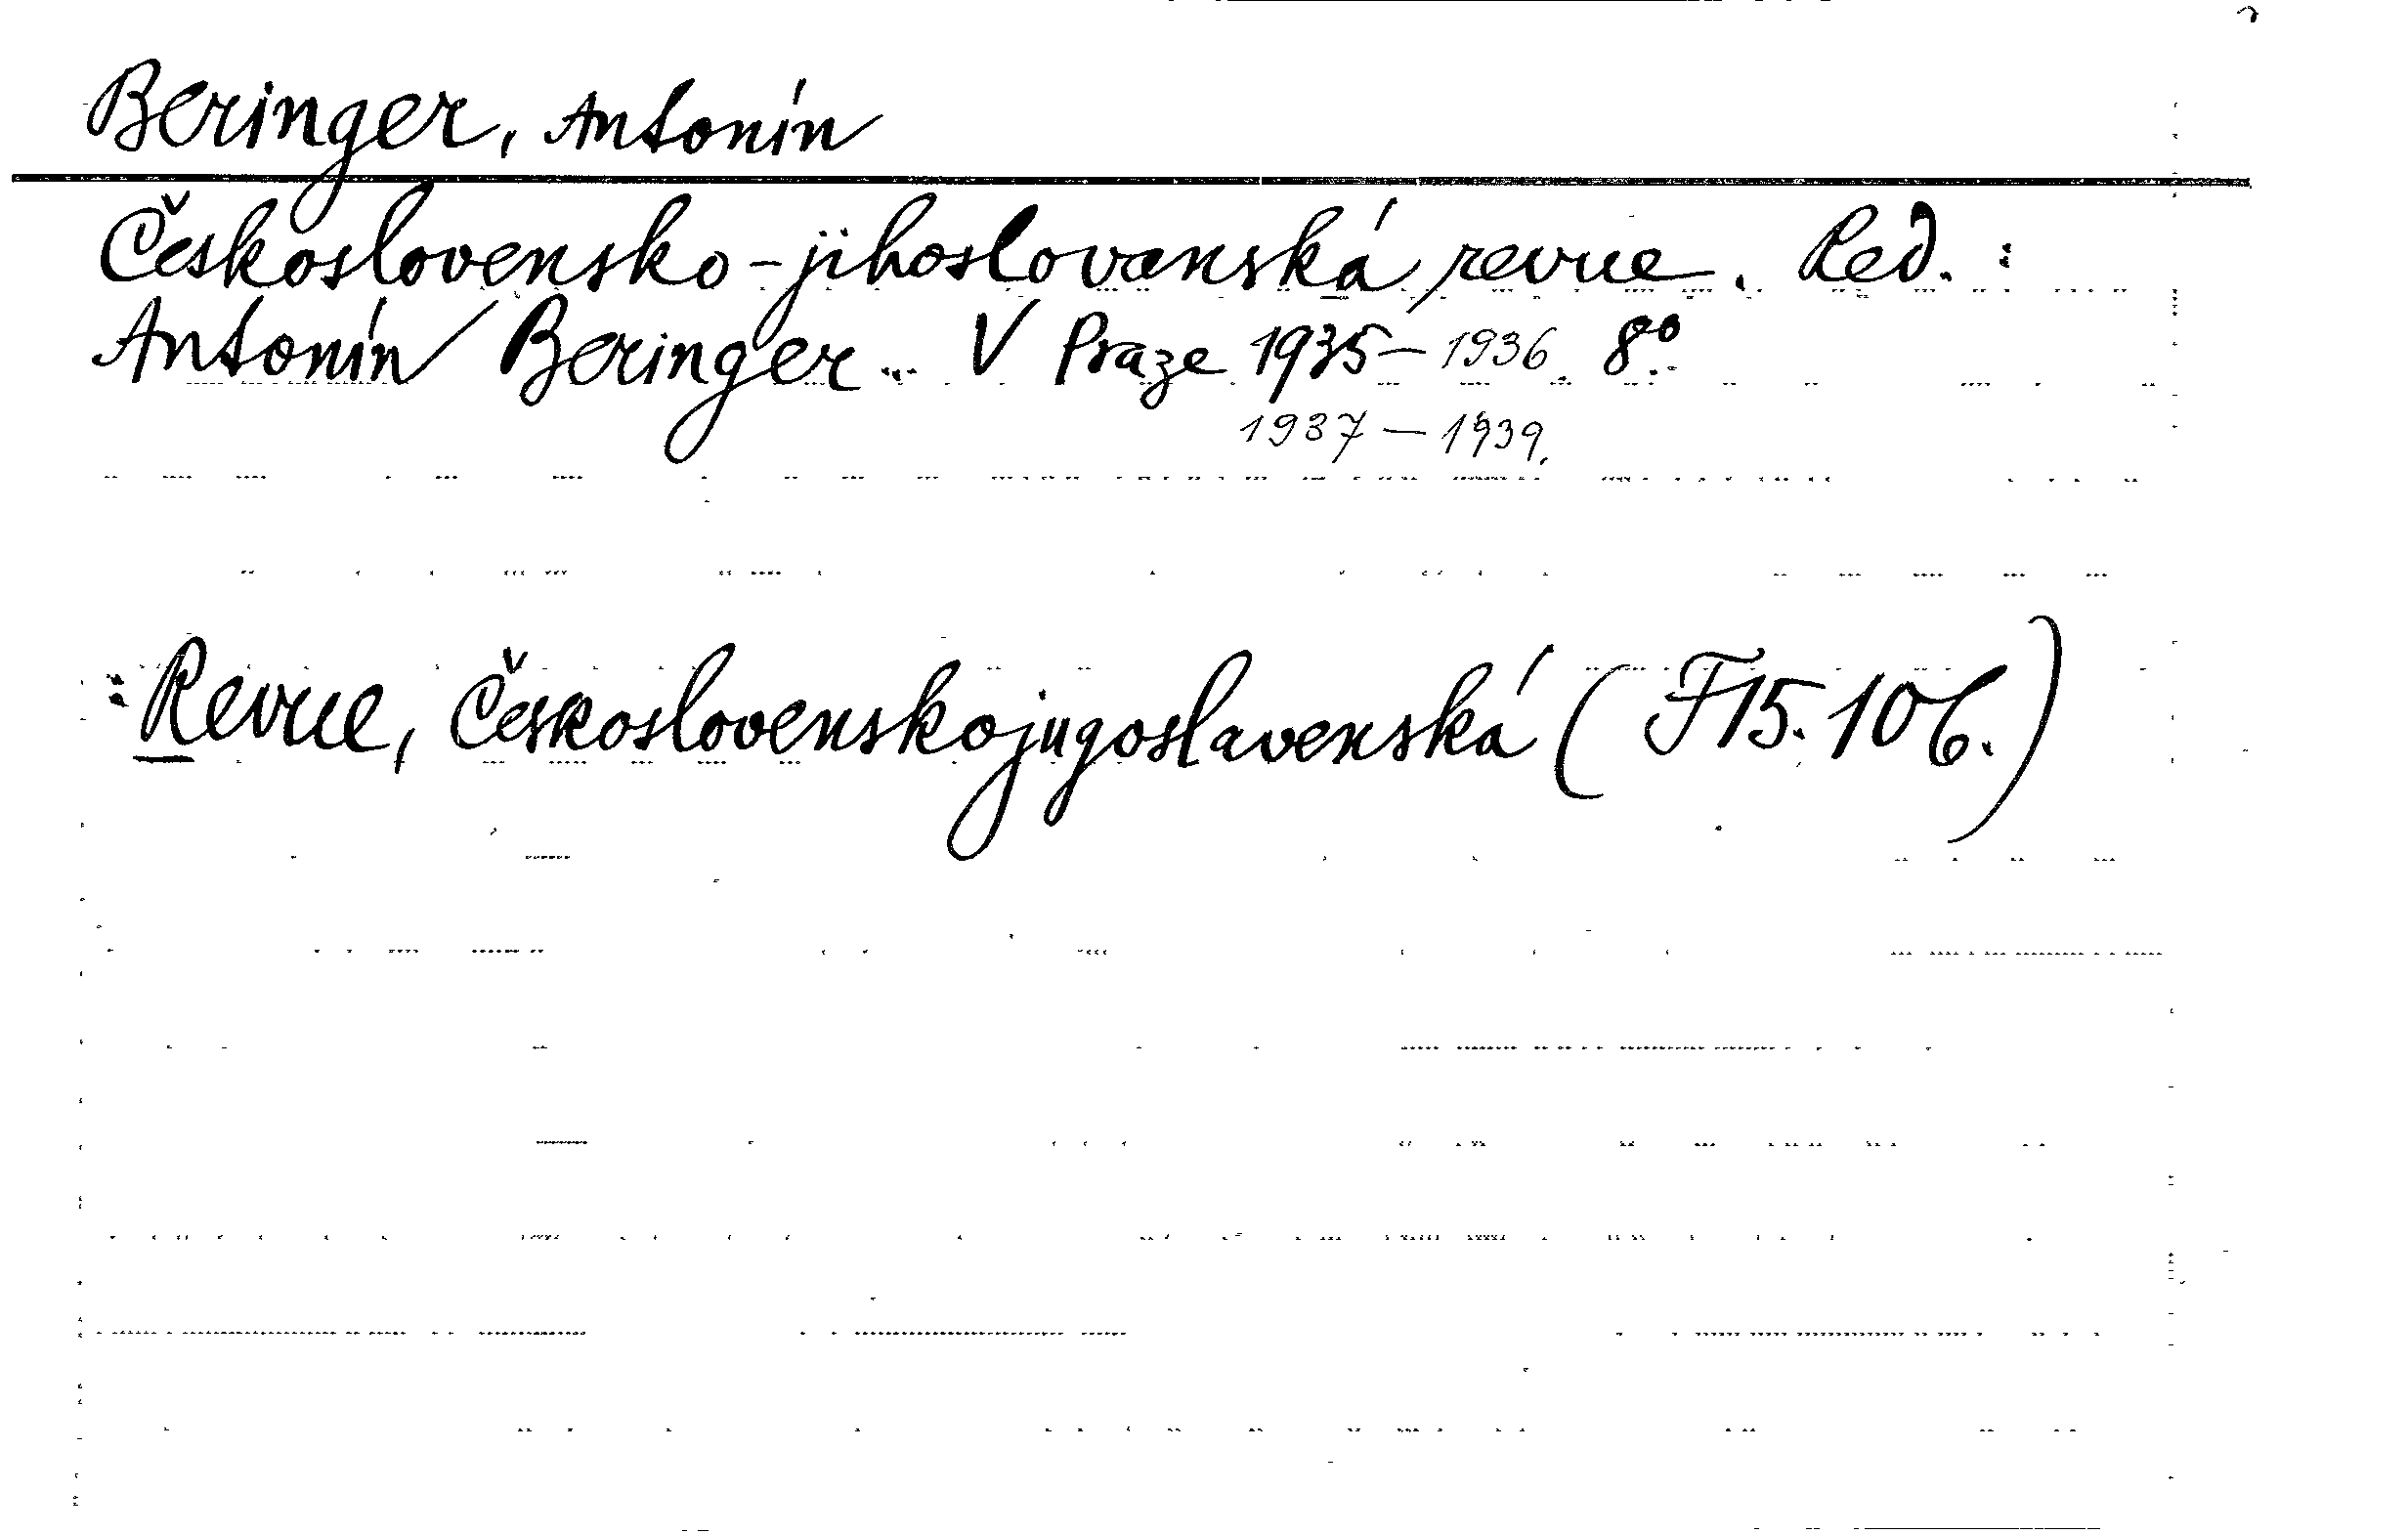 Beringer, Antonín
Československo-jihoslovanská revue. Red.:
Antonín Beringer... V Praze 1935–1936. 8°.
1937–1939.
: Revue, Československojugoslavenská (F 15.106.)